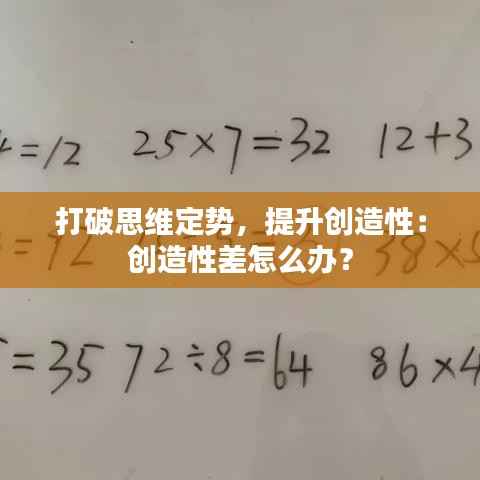 =12 25×7=32 12+3
打破思维定势，提升创造性：
=92 38×5
创造性差怎么办？
=35 72÷8=64 86×4